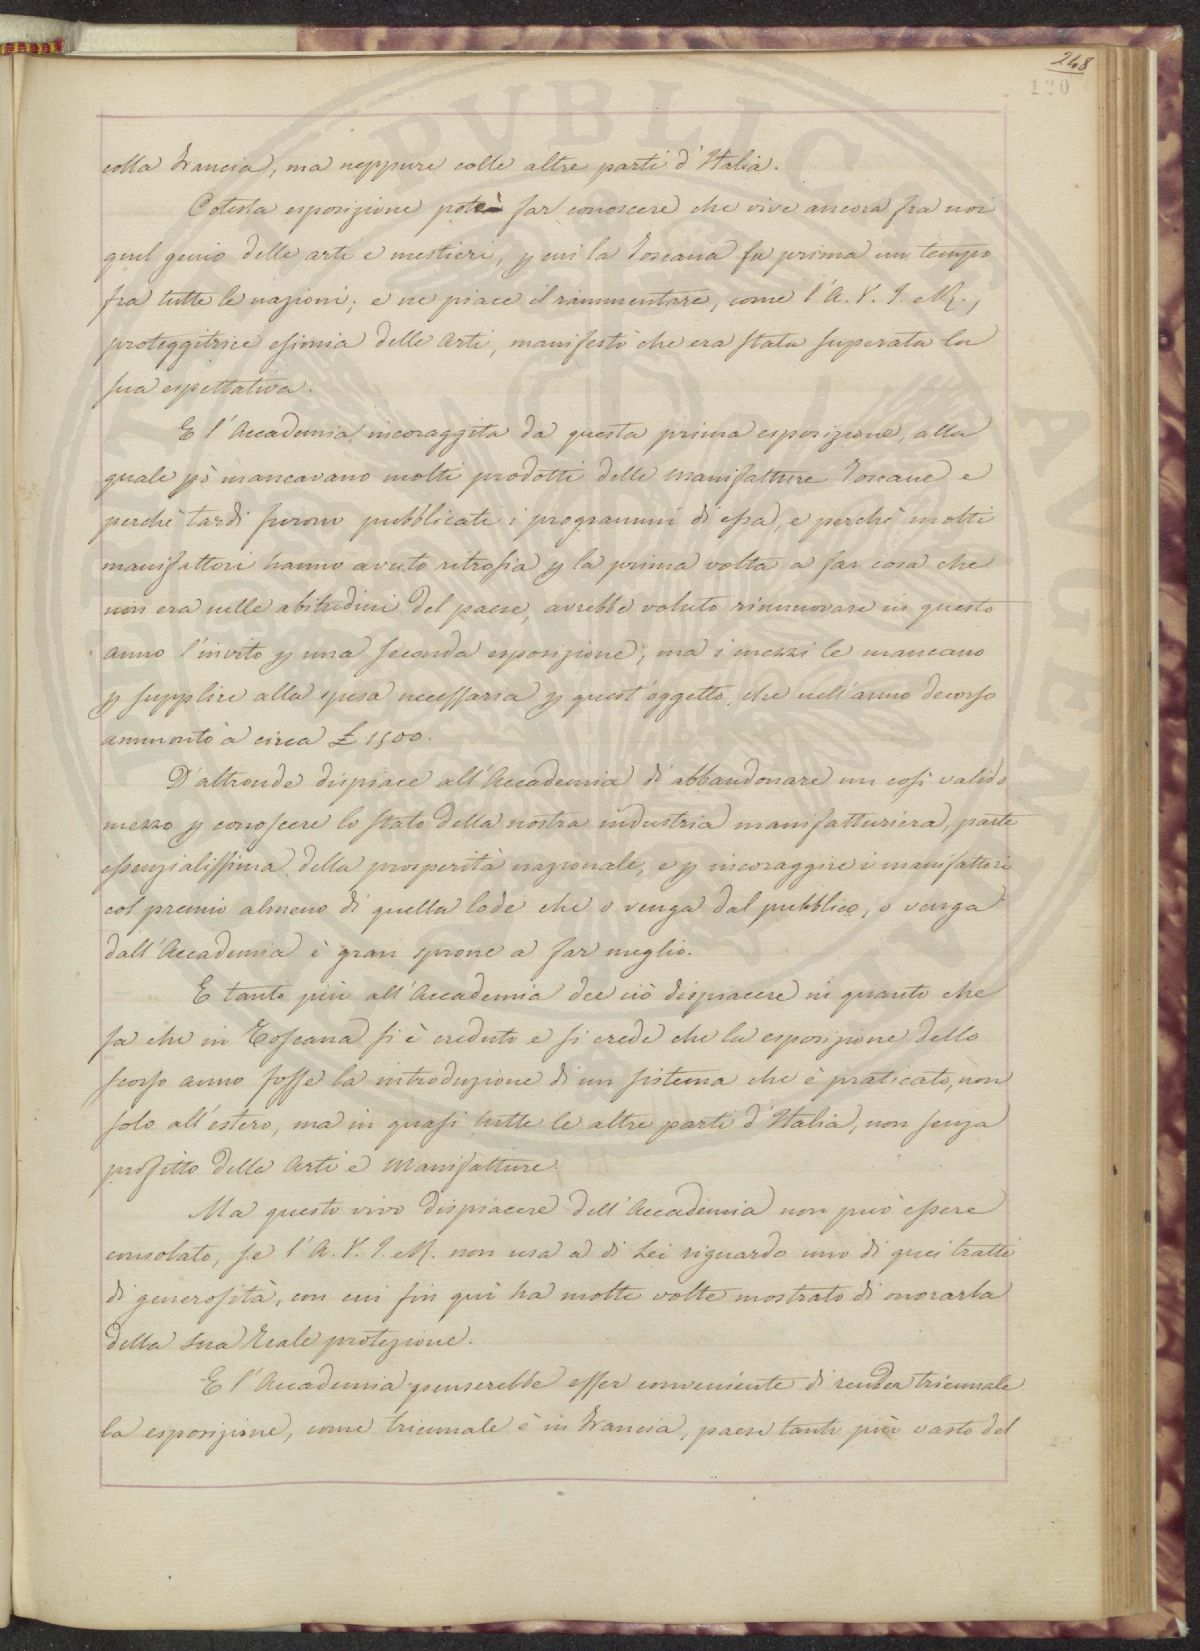 248
120
colla Francia, ma neppure colle altre parti d'Italia.
Cotesta esposizione potè far conoscere che vive ancora fra noi
quel genio delle arti e mestieri, p cui la Toscana fu prima un tempo
fra tutte le nazioni; e ne piace il rammentare, come l'A. V. I. e R.,
proteggitrice esimia delle Arti, manifestò che era stata superata la
sua espettativa.
E l'Accademia incoraggita da questa prima esposizione, alla
quale pò mancavano molti prodotti delle Manifatture Toscane e
perchè tardi furono pubblicati i programmi di essa, e perchè molti
manifattori hanno avuto ritrosia p la prima volta a far cosa che
non era nelle abitudini del paese, avrebbe voluto rinnuovare in questo
anno l'invito p una seconda esposizione; ma i mezzi le mancano
p supplire alla spesa necessaria p quest'oggetto, che nell'anno decorso
ammontò a circa £ 1500.
D'altronde dispiace all'Accademia di abbandonare un così valido
mezzo p conoscere lo stato della nostra industria manifatturiera, parte
essenzialissima della prosperità nazionale, e p incoraggire i manifattori
col premio almeno di quella lode che o venga dal pubblico, o venga
dall'Accademia è gran sprone a far meglio.
E tanto più all'Accademia dee ciò dispiacere in quanto che
sa che in Toscana si è creduto e si crede che la esposizione dello
scorso anno fosse la introduzione di un sistema che è praticato, non
solo all'estero, ma in quasi tutte le altre parti d'Italia, non senza
profitto delle Arti e Manifatture.
Ma questo vivo dispiacere dell'Accademia non può essere
consolato, se l'A. V. I. e R. non usa a di Lei riguardo uno di quei tratti
di generosità, con cui fin quì ha molte volte mostrato di onorarla
della Sua Reale protezione.
E l'Accademia penserebbe esser conveniente di render triennale
la esposizione, come triennale è in Francia, paese tanto più vasto del